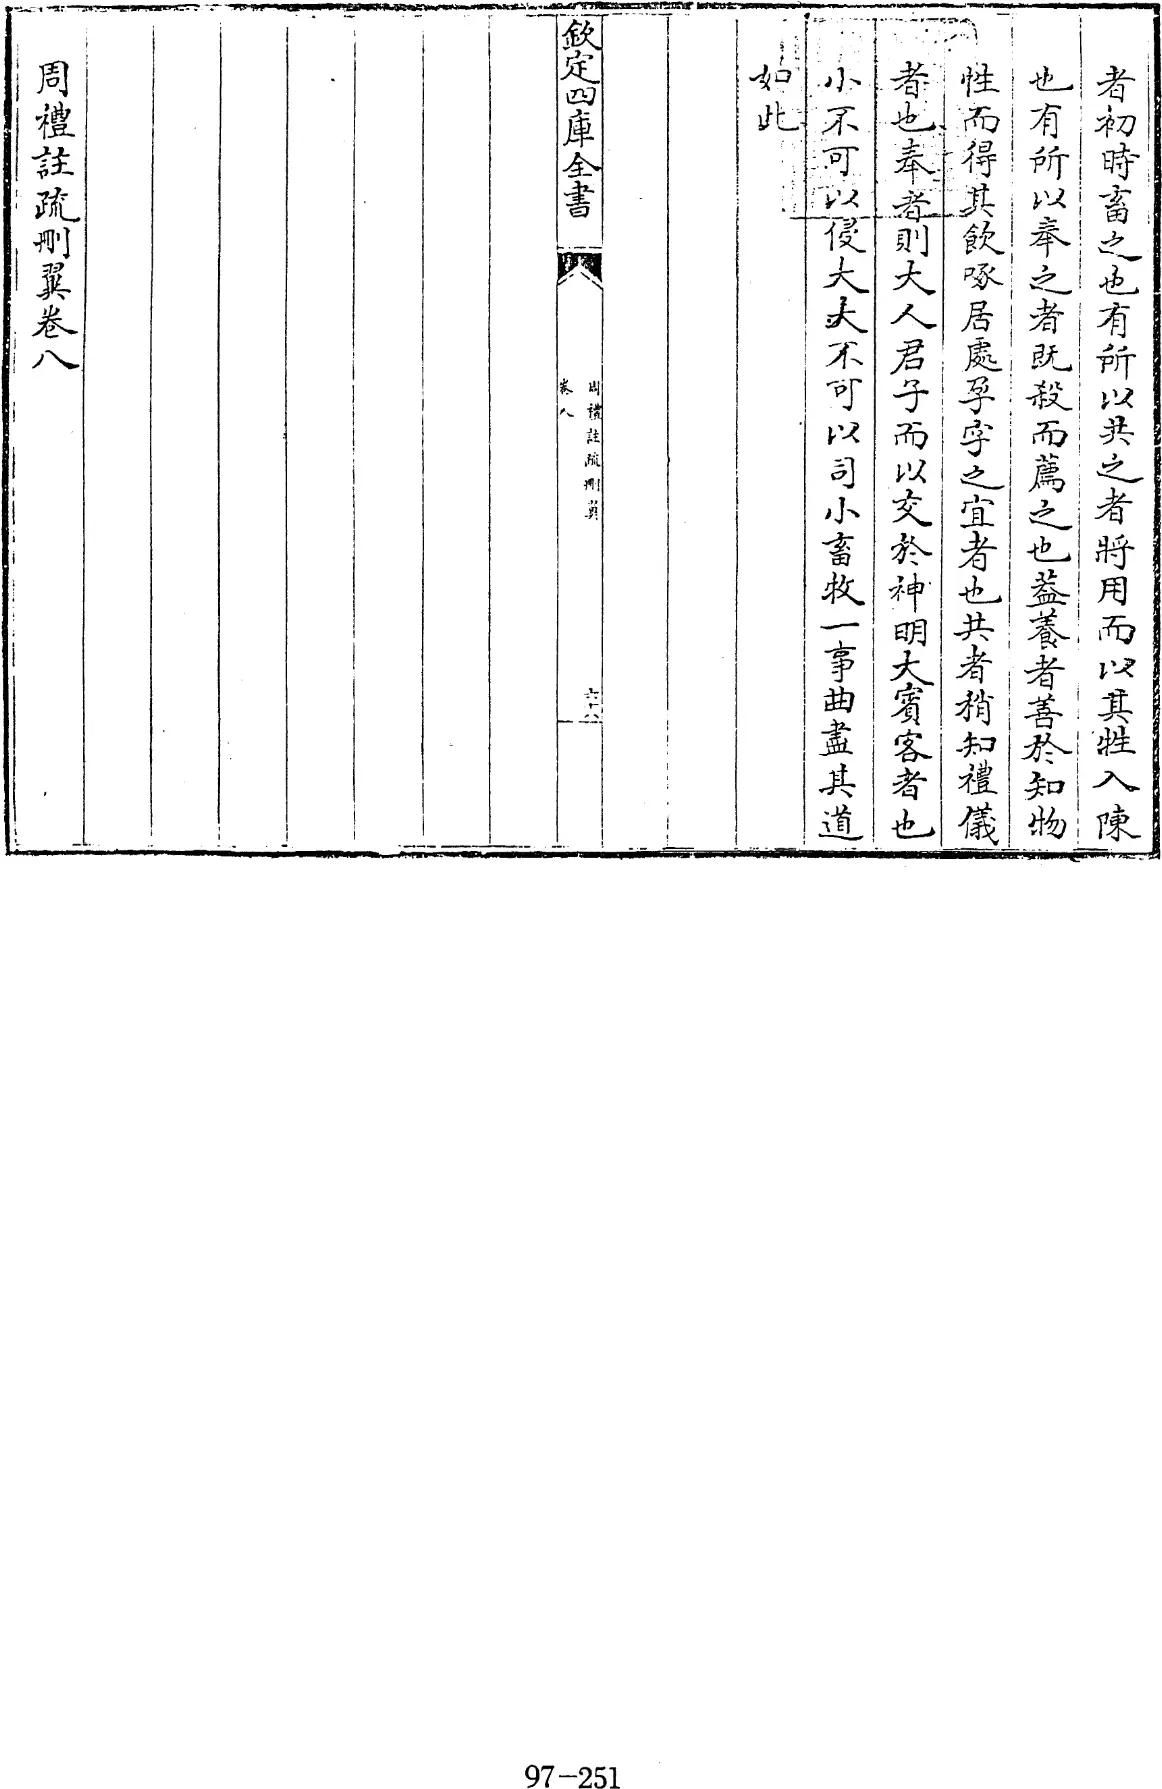 者初時畜之也有所以共之者將用而以其牲入陳
也有所以奉之者既殺而薦之也蓋養者善於知物
性而得其飲啄居處孕字之宜者也共者稍知禮儀
者也奉者則大人君子而以交於神明大賓客者也
小不可以侵大大不可以司小畜牧一事曲盡其道
如此
欽定四庫全書
周禮註疏刪翼
卷八
六十八
周禮註疏刪翼卷八
97-251